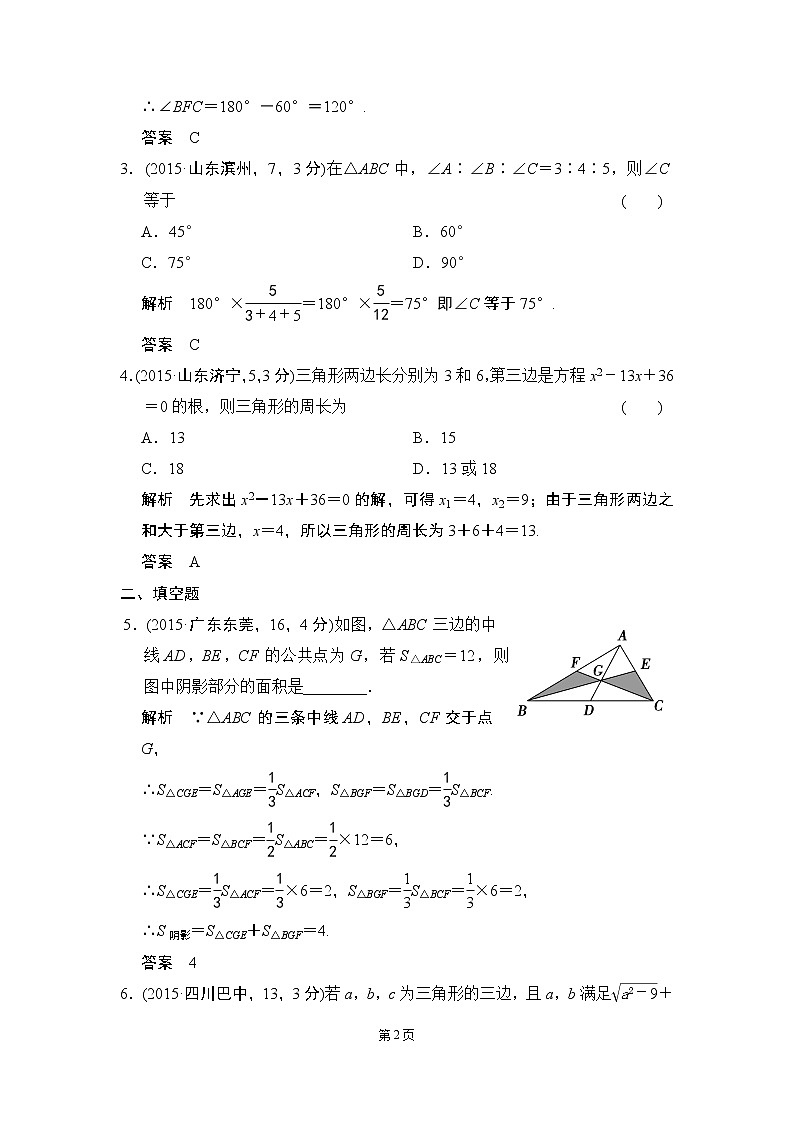 ∴∠BFC=180°-60°=120°.
答案 C
3. (2015·山东滨州,7,3分)在△ABC中,∠A∶∠B∶∠C=3∶4∶5,则∠C
等于 ( )
A.45° B.60°
C.75° D.90°
解析 180°×5/(3+4+5)=180°×5/12=75°即∠C等于75°.
答案 C
4.(2015·山东济宁,5,3分)三角形两边长分别为3和6,第三边是方程x²-13x+36
=0的根,则三角形的周长为 ( )
A.13 B.15
C.18 D.13或18
解析 先求出x²-13x+36=0的解,可得x₁=4,x₂=9;由于三角形两边之
和大于第三边,x=4,所以三角形的周长为3+6+4=13.
答案 A
二、填空题
5.(2015·广东东莞,16,4分)如图,△ABC三边的中
线AD,BE,CF的公共点为G,若S△ABC=12,则
图中阴影部分的面积是________.
A
F
G
E
B
D
C
解析 ∵△ABC的三条中线AD,BE,CF交于点
G,
∴S△CGE=S△AGE=1/3S△ACF,S△BGF=S△BGD=1/3S△BCF.
∵S△ACF=S△BCF=1/2S△ABC=1/2×12=6,
∴S△CGE=1/3S△ACF=1/3×6=2,S△BGF=1/3S△BCF=1/3×6=2,
∴S阴影=S△CGE+S△BGF=4.
答案 4
6.(2015·四川巴中,13,3分)若a,b,c为三角形的三边,且a,b满足√(a²-9)+
第2页